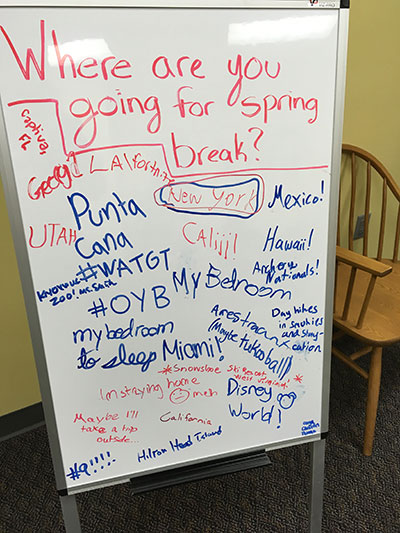 Where are you
going for spring
break?
Captiva,
FL
LA
New York
Mexico!
UTAH
Punta
Cana
Hawaii!
#WATGT
Archery
Nationals!
zoo!
My Bedroom
#OYB
Day hikes
in smokies
and stay-
cation
my bedroom
to sleep
Miami!
*Snowshoe Ski Resort
West Virginia! *
Im staying home
meh
Disney
World!
Maybe I'll
take a trip
outside...
California
Hilton Head Island